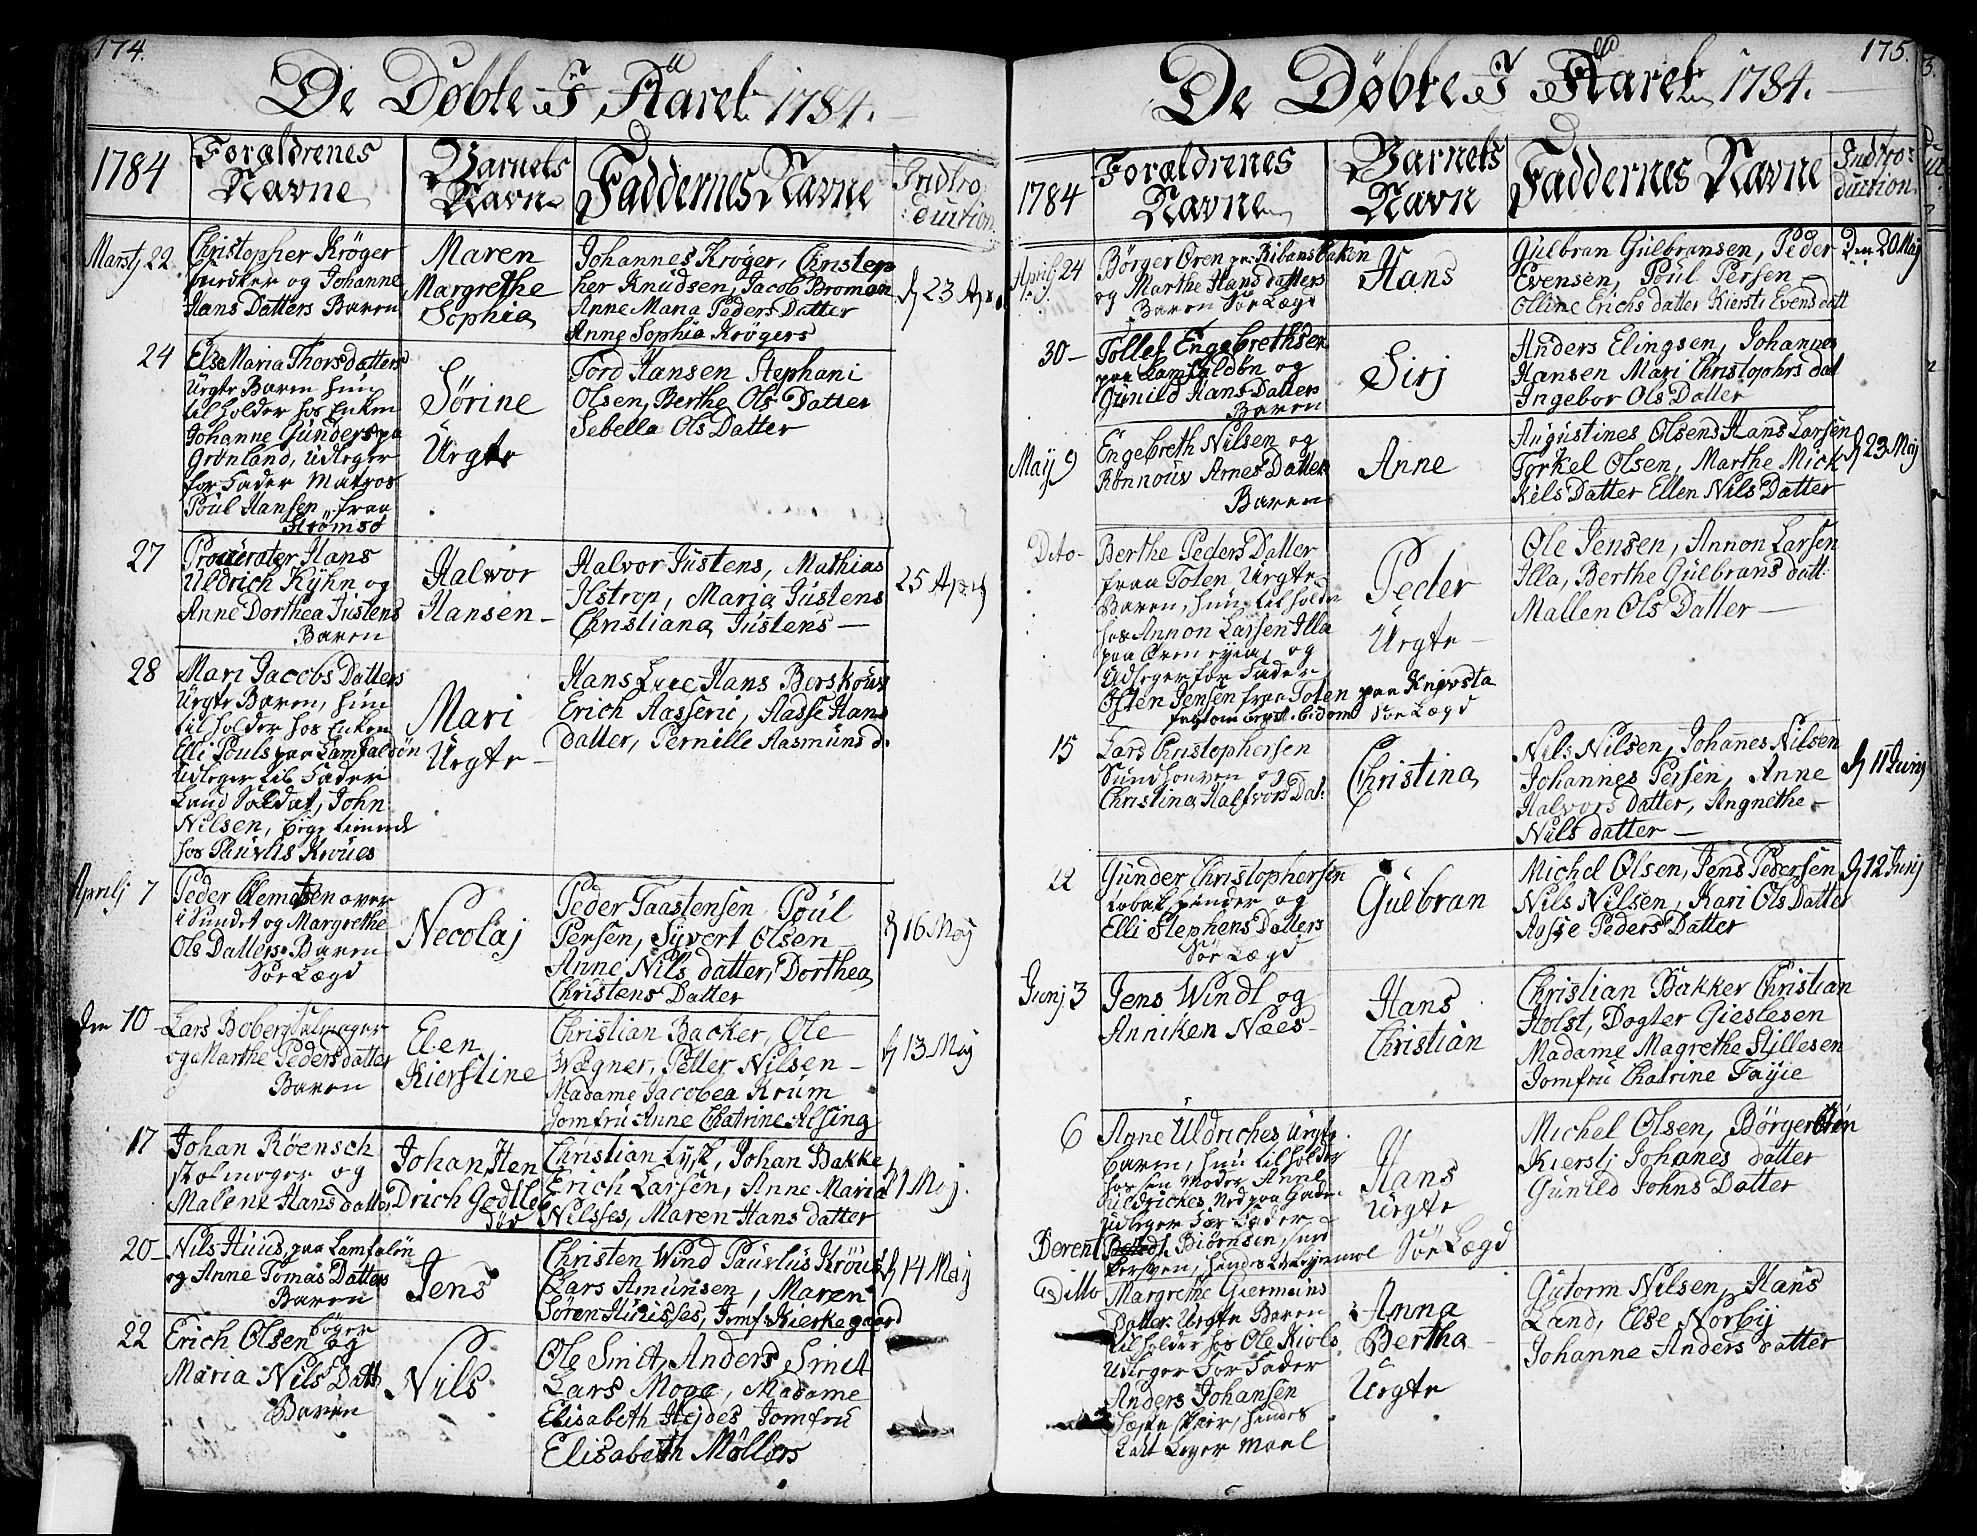 174.
De Döbte I Aaret 1784.
1784
Forældrenes Navne
Barnets Navn
Faddernes Navne
Indtroduction
Martj 22
Christopher Kröger
og Johanne
Hans Datters Baren
Maren
Margrethe
Sophia
Johannes Kröger, Christop
her Knudsen, Jacob Broman
Anne Maria Peders Datter
Anne Sophia Krögers
23 Apr
24
Else Maria Thorsdatters
Uegte Baren hun
til holder hos Enken
Johanne Gunders paa
Grønland, Udleger
for Fader Matros
Poul Hansen fraa
Strömsö
Sörine
Uegte
Tord Hansen Stephani
Olsen, Berthe Ols Datter
Sebella Ols Datter
27
Procurater Hans
Uldrich Kyhn og
Anne Dorthea Justens
Baren
Halvor
Hansen
Halvor Justens, Mathias
Ilstrop, Maria Justens
Christiana Justens
25 April
28
Mari Jacobs Datters
Uegte Baren, hun
til holder hos Enken
Elli Pouls paa Lamfaldön
Udleger til Fader
Land Soldat, John
Nilsen,
hos Pauvlus Kroues
Mari
Uegte
Hans Lure Hans Berskoun
Erich Aassent, Aasse Hans
datter, Pernille Aasmuns d.
Aprilj 7
Peder Clemetsen over
i Sundet og Margrethe
Ols Datters Baren
Sör Lægd
Necolaj
Peder Taastensen Poul
Persen, Syvert Olsen
Anne Nils datter, Dorthea
Christens Datter
16 Maj
Den 10
Lars Boberg
og Marthe Pedersdatter
Baren
Elen
Kierstine
Christian Backer, Ole
Wægner, Petter Nilsen
Madame Jacobea Krum
Jomfru Anne Chatrine Alsing
13 Maj
17
Johan Röensch
skolmager og
Malene Hansdatter
Johan Hen
Drich Godtleb
Christian Lysk, Johan Bakke
Erich Larsen, Anne Maria
Nilsses, Maren Hans datter
1 Maj.
20
Nils Huus, paa Lamfalön
og Anne Tomas Datters
Baren
Jens
Christen Wind Pauvlus Kröus
Lars Amunsen, Maren
Sören Hinisses, Jomf: Kierkegaard
14 Maj
22
Erich Olsen böger
og
Maria Nils Datt
Baren
Nils
Ole Smit, Anders Smit
Lars Moge, Madame
Elisabeth Hejdes, Jomfru
Elisabeth Möllers
175.
De Döbte I Aaret 1784.
1784
Forældrenes Navne
Barnets Navn
Faddernes Navne
Indtroduction
April 24
Börger Ören paa Ribansbaken
og Marthe Hans datters
Baren Sör Lægd
Hans
Gulbran Gulbransen, Peder
Evensen, Poul Persen
Olline Erichs datter Kiersti Evens datt
Den 20 Maj
30
Tollef Engebrethsen
paa Lamfaldön og
Gunild Hans Datters
Baren
Sirj
Anders Elingsen, Johannes
Hansen Mari Christophrs dat
Ingebor Ols Datter
Maij 9
Engebreth Nilsen og
Rönnouv Arnes Datter
Baren
Anne
Augustines Olsens Hans Larsen
Torkel Olsen, Marthe Mick
Kels Datter Ellen Nils Datter
23 Maj
Dito
Berthe Peders Datter
fraa Toten Uegte
Baren, hun til holder
hos Annon Larsen Illa
paa Ören, og
Udleger for Fader
Osten Jensen fraa Toten paa Knivsta
Sör Lægd
Peder
Uegte
Ole Jensen, Annon Larsen
Illa, Berthe Gulbrans datt:
Mallen Ols Datter
15
Lars Christophersen
Sundhouven og
Christina Halfvors Dat:
Christina
Nils Nilsen, Johannes Nilsen
Johannes Persen, Anne
Halvors datter, Angnethe
Nils datter
11 Junij
22
Gunder Christophersen
Tobak spinder og
Elli Stephens Datters
Sör Lægd
Gulbran
Michel Olsen, Jens Pedersen
Nils Nilsen, Kari Ols Datter
Aasse Peders Datter
12 Junij
Junj 3
Jens Windt og
Anniken Næes
Hans
Christian
Christian Bakker Christian
Holst, Dogter Giestesen
Madame Magrethe Stillesen
Jomfru Chatrine Fayie
6
Anne Uldriches Uegte
Baren, hun til holder
hos sin Moder Anne
Uldriches Ved paa Gaden
Udleger For Fader
Berent Biörnsen,
Sör Lægd
Hans
Uegte
Michel Olsen, Börger Ören
Kierstj Johanes datter
Gunild Johns Datter
Ditto
Margrethe Giermuns
Datter Uegte Baren
til holder hos Ole Kiols
Udleger For Fader
Anders Johansen
hendes
Lættleger maal
Anna
Bertha
Uegte
Gutorm Nilsen, Hans
Land, Else Norbij
Johanne Anders datter